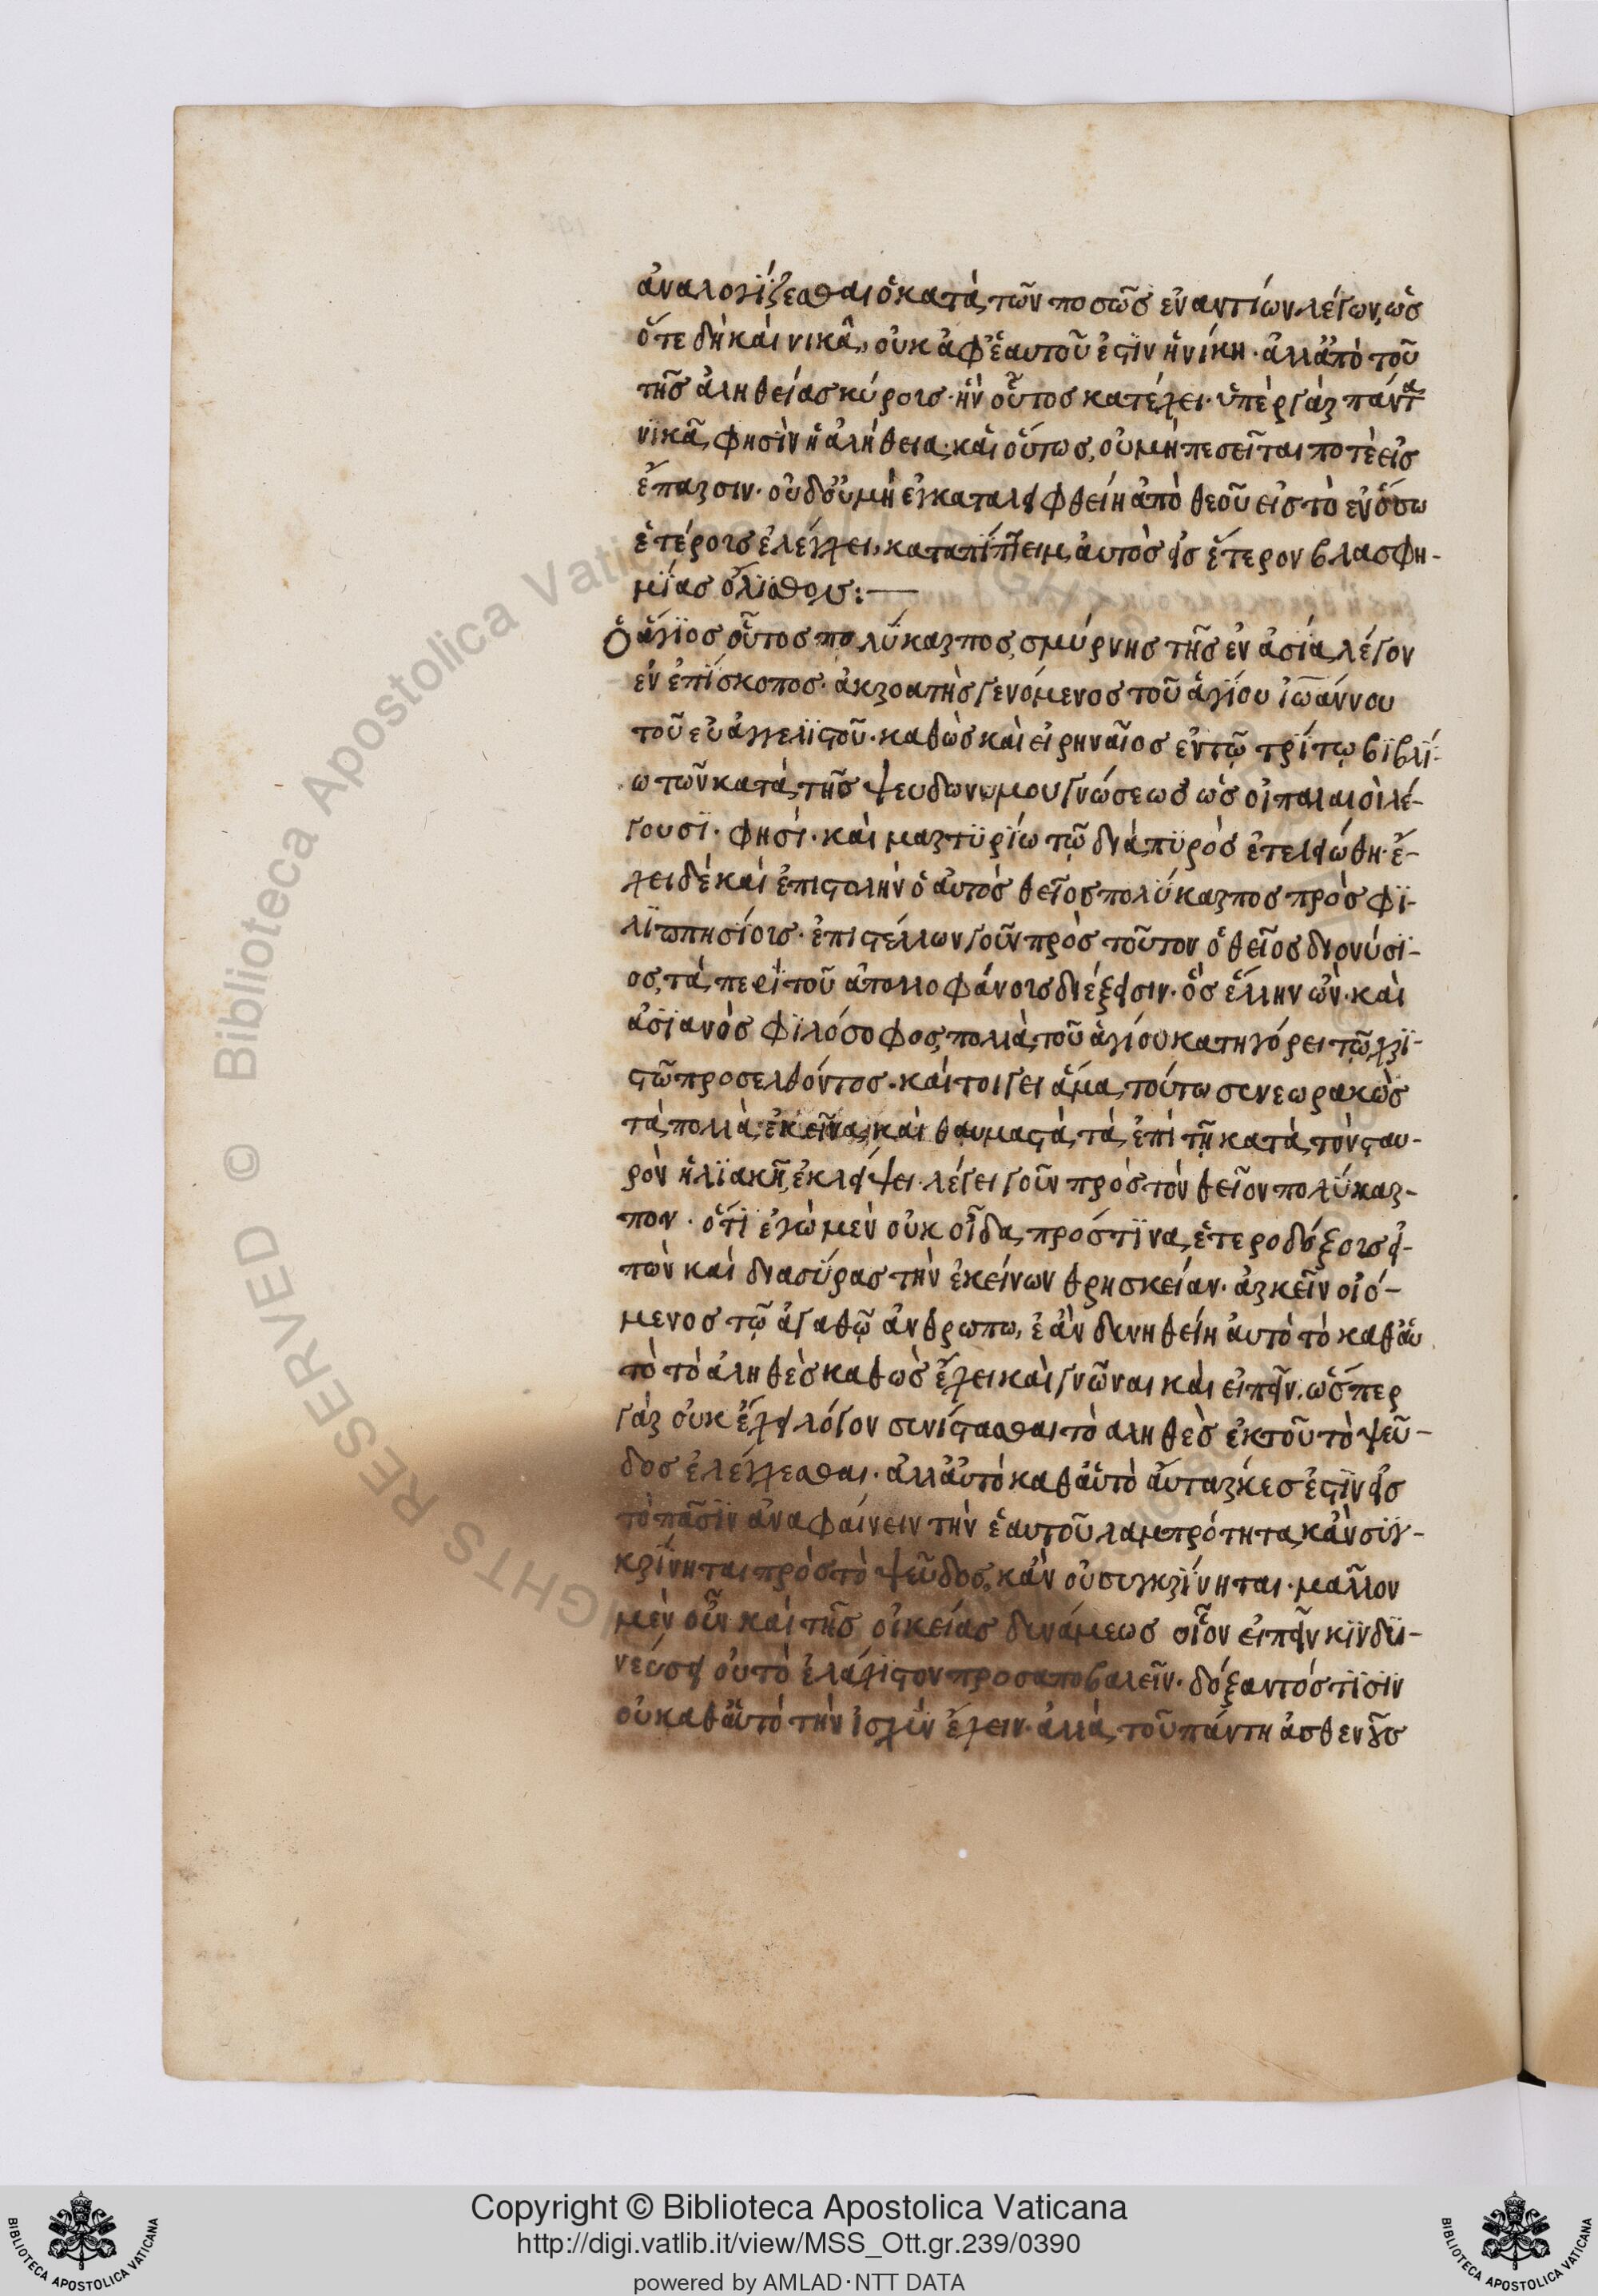 ἀναλογίζεσθαι ὁ κατὰ τῶν ποσῶς ἐναντίων λέγων, ὡς
ὅτε δὴ καὶ νικᾶ, οὐκ ἀφ' ἑαυτοῦ ἐστϊν ἡ νίκη· ἀλλ' ἀπὸ τοῦ
τῆς ἀληθείας κύρους· ἣν οὗτος κατέχει· ὑπὲρ γὰρ πάντα
νϊκᾶ, φησὶν ἡ ἀλήθεια· καὶ οὕτως, οὐ μὴ πεσεῖται ποτὲ εἰς
ἔπαρσιν· οὐδ' οὐ μὴ ἐγκαταλειφθείη ἀπὸ θεοῦ εἰς τὸ ἐν ὅσω
ἑτέρους ἐλέγχει, καταπίπτειν αὐτὸς εἰς ἕτερον βλασφη-
μίας ὄλϊσθον:—
Ὁ ἅγϊος οὗτος πολΰκαρπος, σμύρνης τῆς ἐν ἀσία, λέγον
ἐν ἐπΐσκοπος· ἀκροατὴς γενόμενος τοῦ ἁγΐου ἰωάννου
τοῦ εὐαγγελϊστοῦ· καθὼς καὶ εἰρηναῖος ἐν τῷ τρΐτῳ βϊβλΐ-
ω τῶν κατὰ τῆς ψευδωνυμου γνώσεως ὡς οἱ παλαιοὶ λέ-
γουσϊ· φησί· καὶ μαρτϋρίω τῷ διὰ πϋρὸς ἐτελειώθη· ἔ-
χει δὲ καὶ ἐπιστολὴν ὁ αὐτὸς θεῖος πολΰκαρπος πρὸς φϊ-
λϊππησΐους· ἐπιστέλλων γοῦν πρὸς τοῦτον ὁ θεῖος διονύσϊ-
ος, τὰ περὶ τοῦ ἀπολλοφάνους διέξεισιν· ὃς ἕλλην ὢν· καὶ
ἀσϊανὸς φϊλόσοφος, πολλὰ τοῦ ἁγίου κατηγόρει τῷ χρϊ-
στῶ προσελθόντος· καίτοι γε ἅμα τούτω συνεωρακὼς
τὰ πολλὰ ἐκεῖνα καὶ θαυμαστὰ, τὰ ἐπὶ τῇ κατὰ τὸν σταυ-
ρὸν ἡλϊακῇ ἐκλείψει· λέγει γοῦν πρὸς τὸν θεῖον πολΰκαρ-
πον· ὅτϊ ἐγὼ μὲν οὐκ οἶδα, πρός τϊνα, ἑτεροδόξους εἰ-
πὼν καὶ διασύρας τὴν ἐκείνων θρησκείαν· ἀρκεῖν οἰό-
μενος τῷ ἀγαθῷ ἀνθρωπω, ἐὰν δυνηθείη αὐτὸ τὸ καθ' αὑ
τὸ τὸ ἀληθὲς καθὼς ἔχει καὶ γνῶναι καὶ εἰπεῖν· ὥσπερ
γὰρ οὐκ ἔχει λόγον συνίστασθαι τὸ αληθὲς ἐκ τοῦ τὸ ψεῦ-
δος ἐλέγχεσθαι· ἀλλ' αὐτὸ καθ' αὑτὸ αὔταρκες ἐστϊν εἰς
τὸ πᾶσϊν ἀναφαίνειν τὴν ἑαυτοῦ λαμπρότητα, κἂν συγ-
κρΐνηται πρὸς τὸ ψεῦδος, κἂν οὐ συγκρΐνηται· μᾶλλον
μὲν οὖν καὶ τῆς οἰκείας δυνάμεως οἷον εἰπεῖν κϊνδυ-
νεύσει οὐ τὸ ἐλάχϊστον προσαποβαλεῖν· δόξαντός τϊσϊν
οὐ καθ' αὑτὸ τὴν ἰσχὺν ἔχειν· ἀλλὰ τοῦ πάντη ἀσθενοῦς
Copyright © Biblioteca Apostolica Vaticana
http://digi.vatlib.it/view/MSS_Ott.gr.239/0390
powered by AMLAD·NTT DATA